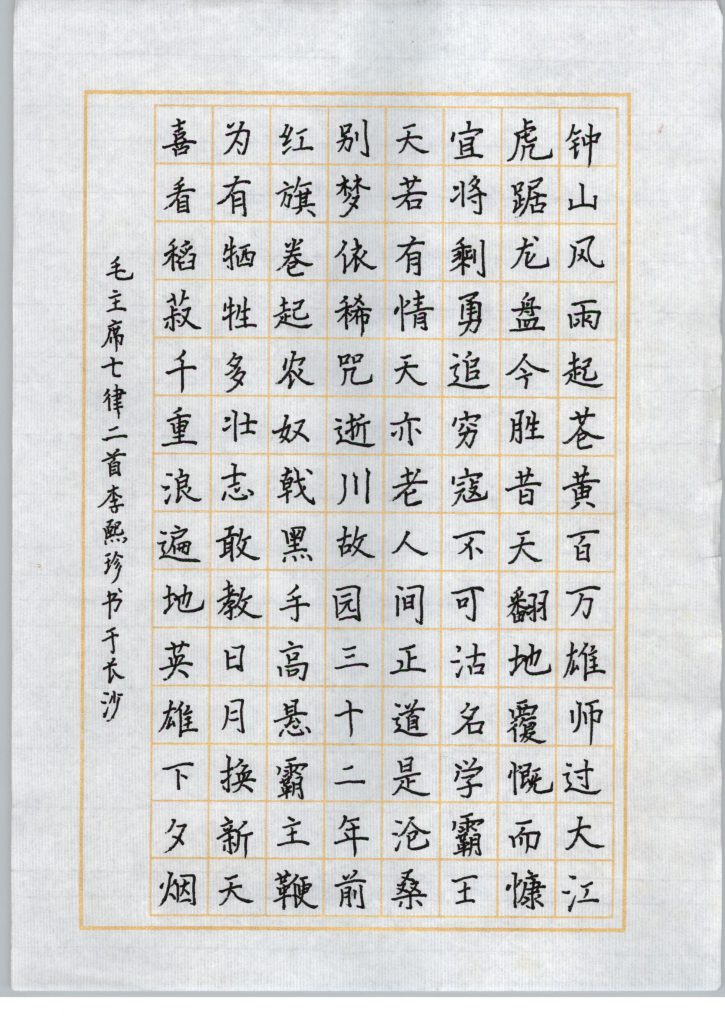 钟山风雨起苍黄百万雄师过大江
虎踞龙盘今胜昔天翻地覆慨而慷
宜将剩勇追穷寇不可沽名学霸王
天若有情天亦老人间正道是沧桑
别梦依稀咒逝川故园三十二年前
红旗卷起农奴戟黑手高悬霸主鞭
为有牺牲多壮志敢教日月换新天
喜看稻菽千重浪遍地英雄下夕烟
毛主席七律二首李熙珍书于长沙